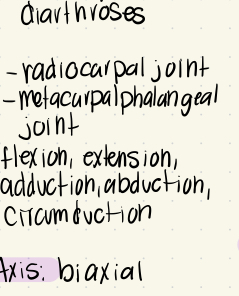 diarthroses
- radiocarpal joint
- metacarpalphalangeal
joint
flexion, extension,
adduction, abduction,
circumduction
Axis: biaxial